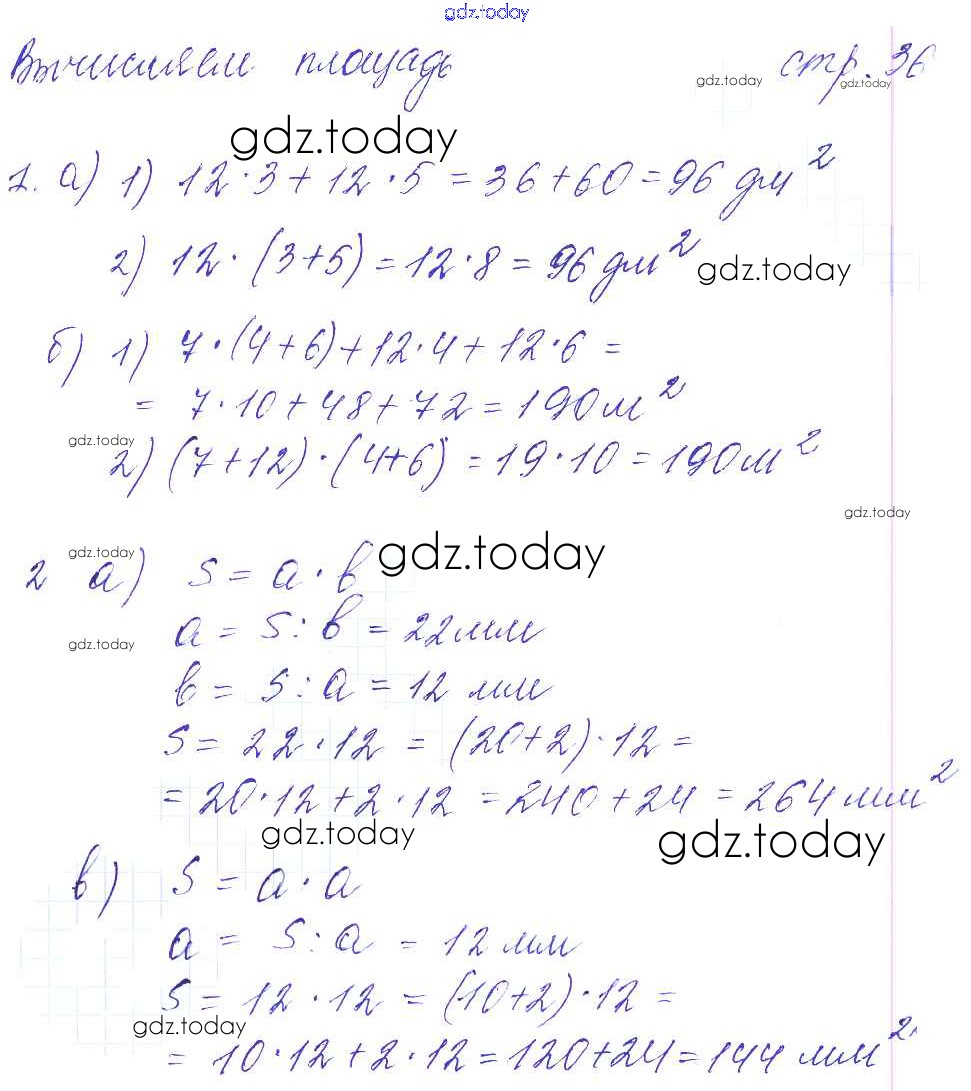 gdz.today
Вычисляем площадь стр. 36
gdz.today gdz.today
gdz.today
1. а) 1) 12·3+12·5=36+60=96 дм²
2) 12·(3+5)=12·8=96 дм²
gdz.today
б) 1) 7·(4+6)+12·4+12·6=
= 7·10+48+72=190 м²
gdz.today
2) (7+12)·(4+6)=19·10=190 м²
gdz.today
gdz.today gdz.today
2 а) S = a·b
a = S:b = 22 мм
gdz.today
b = S:a = 12 мм
S = 22·12 = (20+2)·12 =
= 20·12+2·12 = 240+24 = 264 мм²
gdz.today gdz.today
в) S = a·a
a = S:a = 12 мм
S = 12·12 = (10+2)·12 =
gdz.today
= 10·12+2·12=120+24=144 мм²